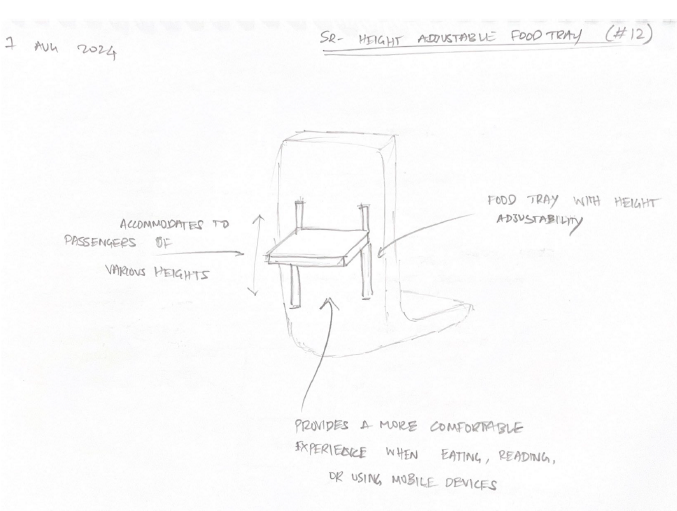 7 AUG 2024
SR- HEIGHT ADJUSTABLE FOOD TRAY (#12)
ACCOMMODATES TO
PASSENGERS OF
VARIOUS HEIGHTS
FOOD TRAY WITH HEIGHT
ADJUSTABILITY
PROVIDES A MORE COMFORTABLE
EXPERIENCE WHEN EATING, READING,
OR USING MOBILE DEVICES